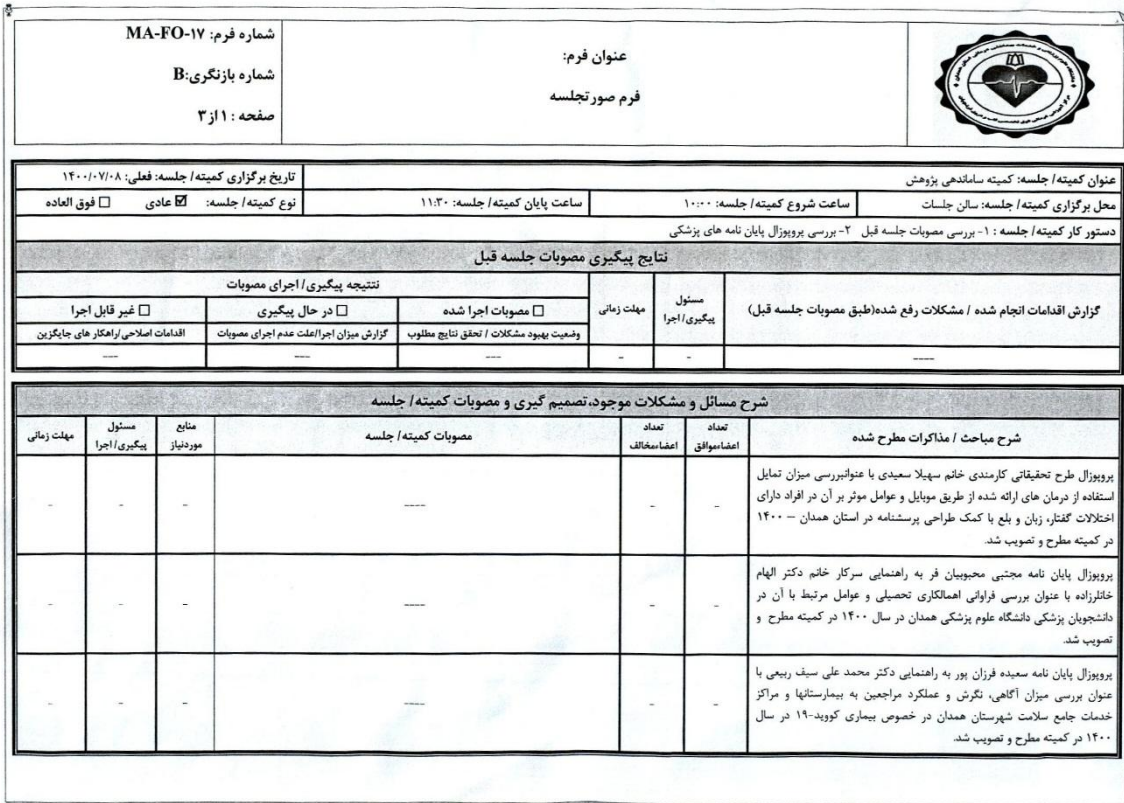 عنوان فرم:
فرم صورتجلسه
شماره فرم: MA-FO-۱۷
شماره بازنگری:B
صفحه : ۱ از ۳
عنوان کمیته/ جلسه: کمیته ساماندهی پژوهش
تاریخ برگزاری کمیته/ جلسه: فعلی: ۱۴۰۰/۰۷/۰۸
محل برگزاری کمیته/ جلسه: سالن جلسات
ساعت شروع کمیته/ جلسه: ۱۰:۰۰
ساعت پایان کمیته/ جلسه: ۱۱:۳۰
نوع کمیته/ جلسه: ☑ عادی ☐ فوق العاده
دستور کار کمیته/ جلسه : ۱- بررسی مصوبات جلسه قبل ۲- بررسی پروپوزال پایان نامه های پزشکی
نتایج پیگیری مصوبات جلسه قبل
گزارش اقدامات انجام شده / مشکلات رفع شده(طبق مصوبات جلسه قبل)
مسئول
پیگیری/ اجرا
مهلت زمانی
نتتیجه پیگیری/ اجرای مصوبات
☐ مصوبات اجرا شده
☐ در حال پیگیری
☐ غیر قابل اجرا
وضعیت بهبود مشکلات / تحقق نتایج مطلوب
گزارش میزان اجرا/علت عدم اجرای مصوبات
اقدامات اصلاحی/راهکار های جایگزین
---- - - --- --- ---
شرح مسائل و مشکلات موجود،تصمیم گیری و مصوبات کمیته/ جلسه
شرح مباحث / مذاکرات مطرح شده
تعداد
اعضاءموافق
تعداد
اعضاءمخالف
مصوبات کمیته/ جلسه
منابع
موردنیاز
مسئول
پیگیری/ اجرا
مهلت زمانی
پروپوزال طرح تحقیقاتی کارمندی خانم سهیلا سعیدی با عنوانبررسی میزان تمایل
استفاده از درمان های ارائه شده از طریق موبایل و عوامل موثر بر آن در افراد دارای
اختلالات گفتار، زبان و بلع با کمک طراحی پرسشنامه در استان همدان – ۱۴۰۰
در کمیته مطرح و تصویب شد.
- - ---- - - -
پروپوزال پایان نامه مجتبی محبوبیان فر به راهنمایی سرکار خانم دکتر الهام
خانلرزاده با عنوان بررسی فراوانی اهمالکاری تحصیلی و عوامل مرتبط با آن در
دانشجویان پزشکی دانشگاه علوم پزشکی همدان در سال ۱۴۰۰ در کمیته مطرح و
تصویب شد.
- - ---- - - -
پروپوزال پایان نامه سعیده فرزان پور به راهنمایی دکتر محمد علی سیف ربیعی با
عنوان بررسی میزان آگاهی، نگرش و عملکرد مراجعین به بیمارستانها و مراکز
خدمات جامع سلامت شهرستان همدان در خصوص بیماری کووید-۱۹ در سال
۱۴۰۰ در کمیته مطرح و تصویب شد.
- - ---- - - -